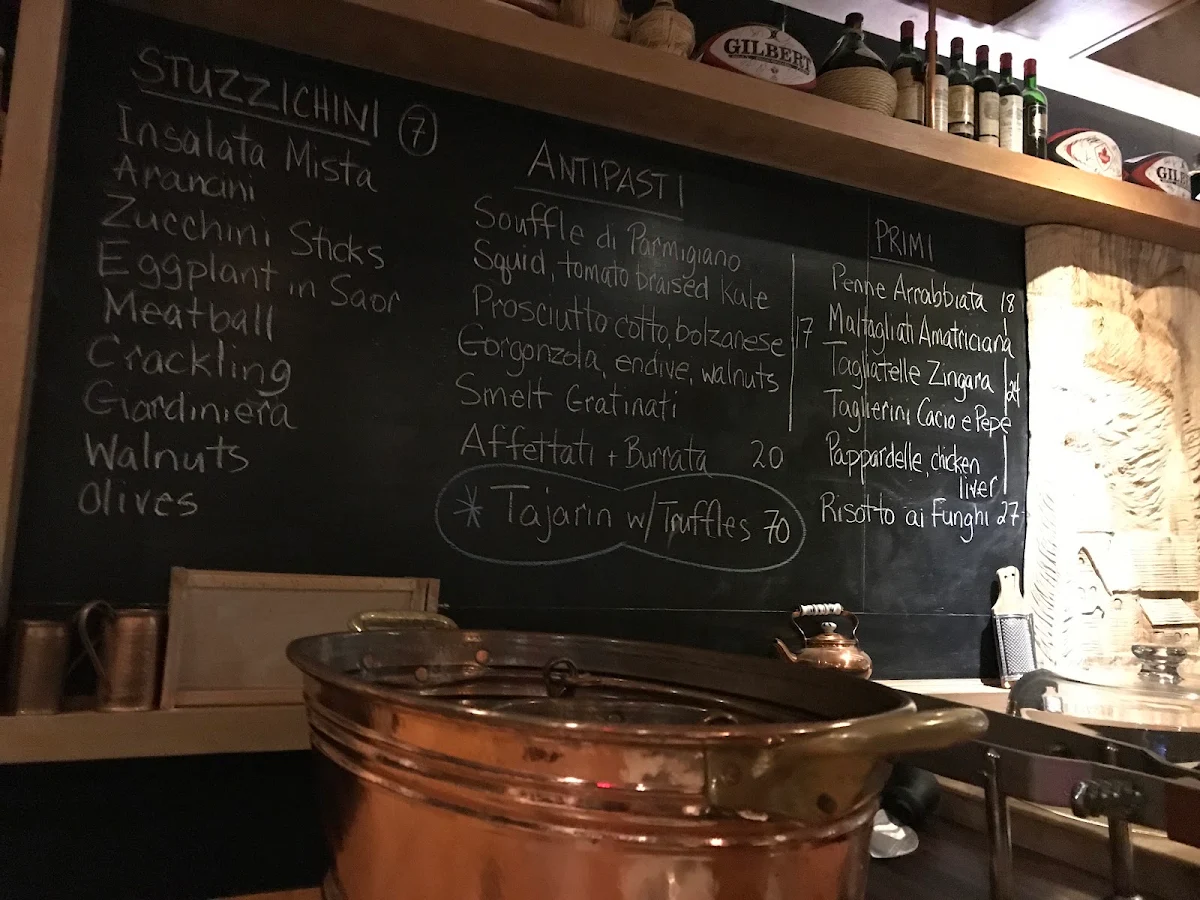 STUZZICHINI 7
Insalata Mista
Arancini
Zucchini Sticks
Eggplant in Saor
Meatball
Crackling
Giardiniera
Walnuts
Olives
ANTIPASTI
Souffle di Parmigiano
Squid, tomato braised Kale
Prosciutto cotto, bolzanese
17
Gorgonzola, endive, walnuts
Smelt Gratinati
Affettati + Burrata 20
* Tajarin w/ Truffles 70
PRIMI
Penne Arrabbiata 18
Maltagliati Amatriciana
Tagliatelle Zingara
24
Taglierini Cacio e Pepe
Pappardelle, chicken
liver
Risotto ai Funghi 27
GILBERT
GILB